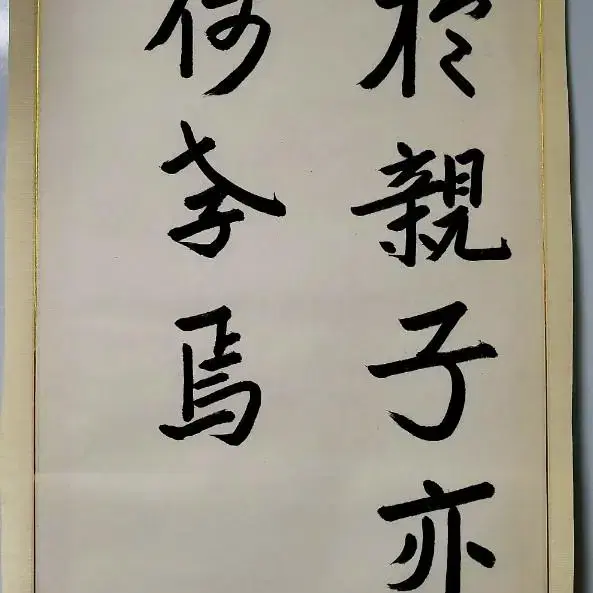 於親子亦
何孝焉